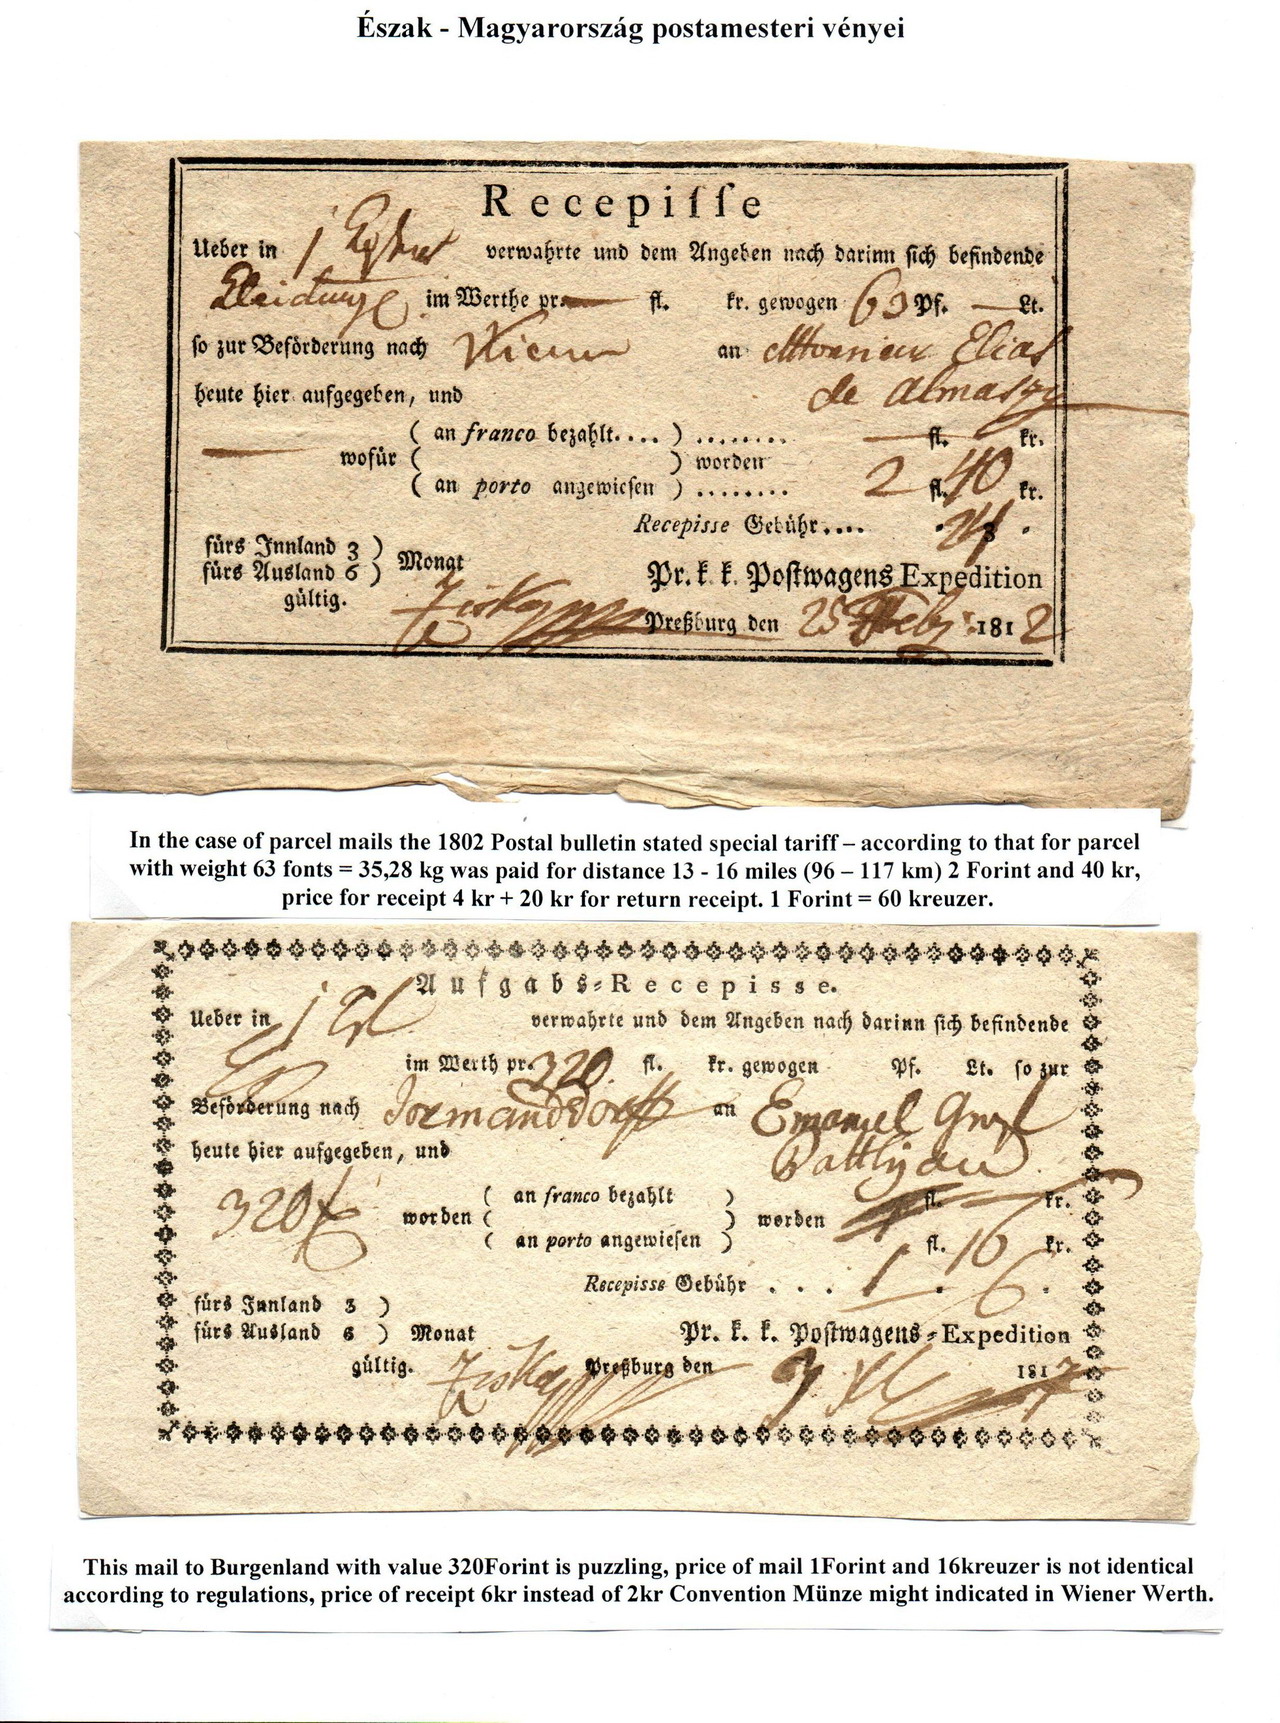 Észak - Magyarország postamesteri vényei
Recepiſſe
Ueber in j verwahrte und dem Angeben nach darinn ſich befindende
im Werthe pr. fl. kr. gewogen 63 Pf. — Lt.
ſo zur Beförderung nach Wienn an Monsieur Elias
de Almasÿ
heute hier aufgegeben, und
( an franco bezahlt.... ) ........ — fl. kr.
wofür ( ) worden
( an porto angewieſen ) ........ 2 fl. 40 kr.
Recepisse Gebühr.... 24
fürs Innland 3 )
fürs Ausland 6 ) Monat
gültig.
Pr. k. k. Poſtwagens Expedition
Preßburg den 25 Feb 1812
In the case of parcel mails the 1802 Postal bulletin stated special tariff – according to that for parcel
with weight 63 fonts = 35,28 kg was paid for distance 13 - 16 miles (96 – 117 km) 2 Forint and 40 kr,
price for receipt 4 kr + 20 kr for return receipt. 1 Forint = 60 kreuzer.
Aufgabs-Recepisse.
Ueber in j verwahrte und dem Angeben nach darinn ſich befindende
im Werth pr. 320 fl. kr. gewogen Pf. Lt. ſo zur
Beförderung nach Jormanddorff an Emanuel Graf
Batthyan
heute hier aufgegeben, und
320 f
( an franco bezahlt ) fl. kr.
worden ( ) worden
( an porto angewieſen ) 1 fl. 16 kr.
Recepisse Gebühr . . . 6 .
fürs Innland 3 )
fürs Ausland 6 ) Monat
gültig.
Pr. k. k. Poſtwagens-Expedition
Preßburg den 1817
This mail to Burgenland with value 320Forint is puzzling, price of mail 1Forint and 16kreuzer is not identical
according to regulations, price of receipt 6kr instead of 2kr Convention Münze might indicated in Wiener Werth.